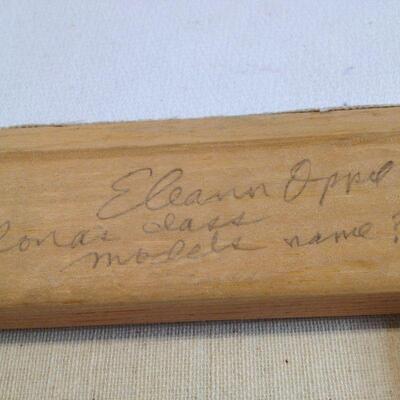 Eleanor Oppe
class
models name?